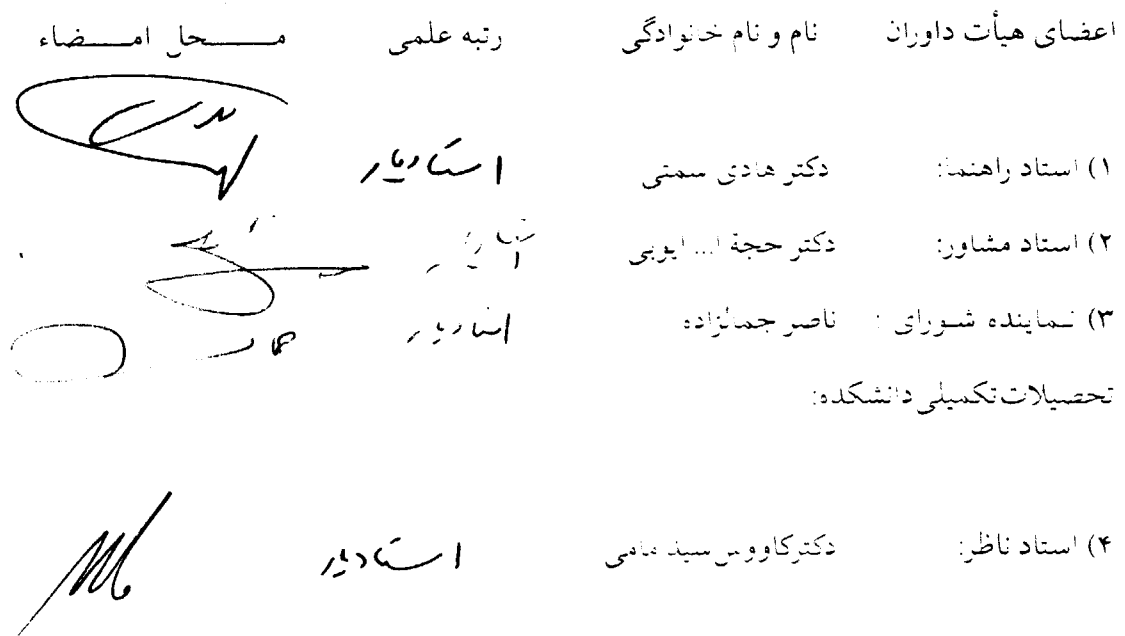 اعضای هیأت داوران نام و نام خانوادگی رتبه علمی محل امضاء
۱) استاد راهنما: دکتر هادی سمتی استادیار
۲) استاد مشاور: دکتر حجة ا... ایوبی استادیار
۳) نماینده شورای : ناصر جمالزاده استادیار
تحصیلات تکمیلی دانشکده:
۴) استاد ناظر: دکتر کاووس سید امامی استادیار